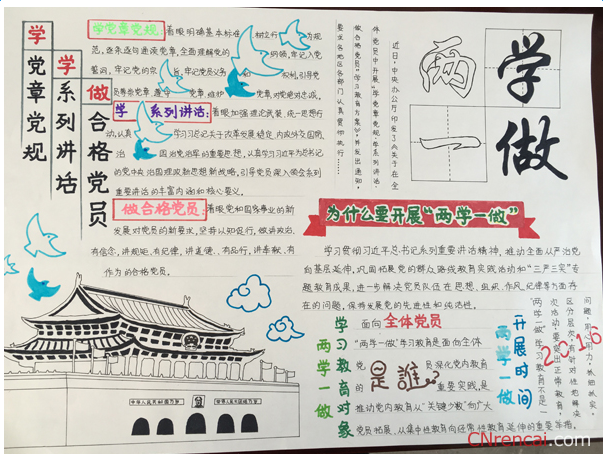 学党章党规
学系列讲话
做合格党员
学党章党规:着眼明确基本标准、树立行为规
范,逐条逐句通读党章,全面理解党的纲领,牢记入党
誓词,牢记党的宗旨,牢记党员义务和权利,引导党
员尊崇党章、遵守党章、维护党章、对党绝对忠诚。
学系列讲话:着眼加强理论武装、统一思想行
动,认真学习习总书记关于改革发展稳定、内政外交国防、
治党治国治军的重要思想,认真学习习近平总书记
的党中央治国理政新思想新战略,引导党员深入领会系列
重要讲话的丰富内涵和核心要义。
做合格党员:着眼党和国家事业的新
发展对党员的新要求,坚持以知促行,做讲政治、
有信念,讲规矩、有纪律,讲道德、有品行,讲奉献、有
作为的合格党员。
近日,中央办公厅印发了《关于在全
体党员中开展“学党章党规、学系列讲话,
做合格党员”学习教育方案》,并发出通知,
要求各地区各部门认真贯彻执行……
两学
一做
为什么要开展“两学一做”
学习贯彻习近平总书记系列重要讲话精神,推动全面从严治党
向基层延伸,巩固拓展党的群众路线教育实践活动和“三严三实”专
题教育成果,进一步解决党员队伍在思想、组织、作风、纪律等方面存
在的问题,保持发展党的先进性和纯洁性。
两学一做
学习教育对象
面向全体党员
“两学一做”学习教育是面向全体
党员深化党内教育
的重要实践,是
推动党内教育从“关键少数”向广大
党员拓展、从集中性教育向经常性教育延伸的重要举措。
是誰?
开展时间
两学一做
2016
“两学一做”学习教育不是一
次活动,要突出正常教育,
区分层次,有针对性地解决
问题,用心用力,抓细抓实,
中华人民共和国万岁
世界人民大团结万岁
CNrencai.com